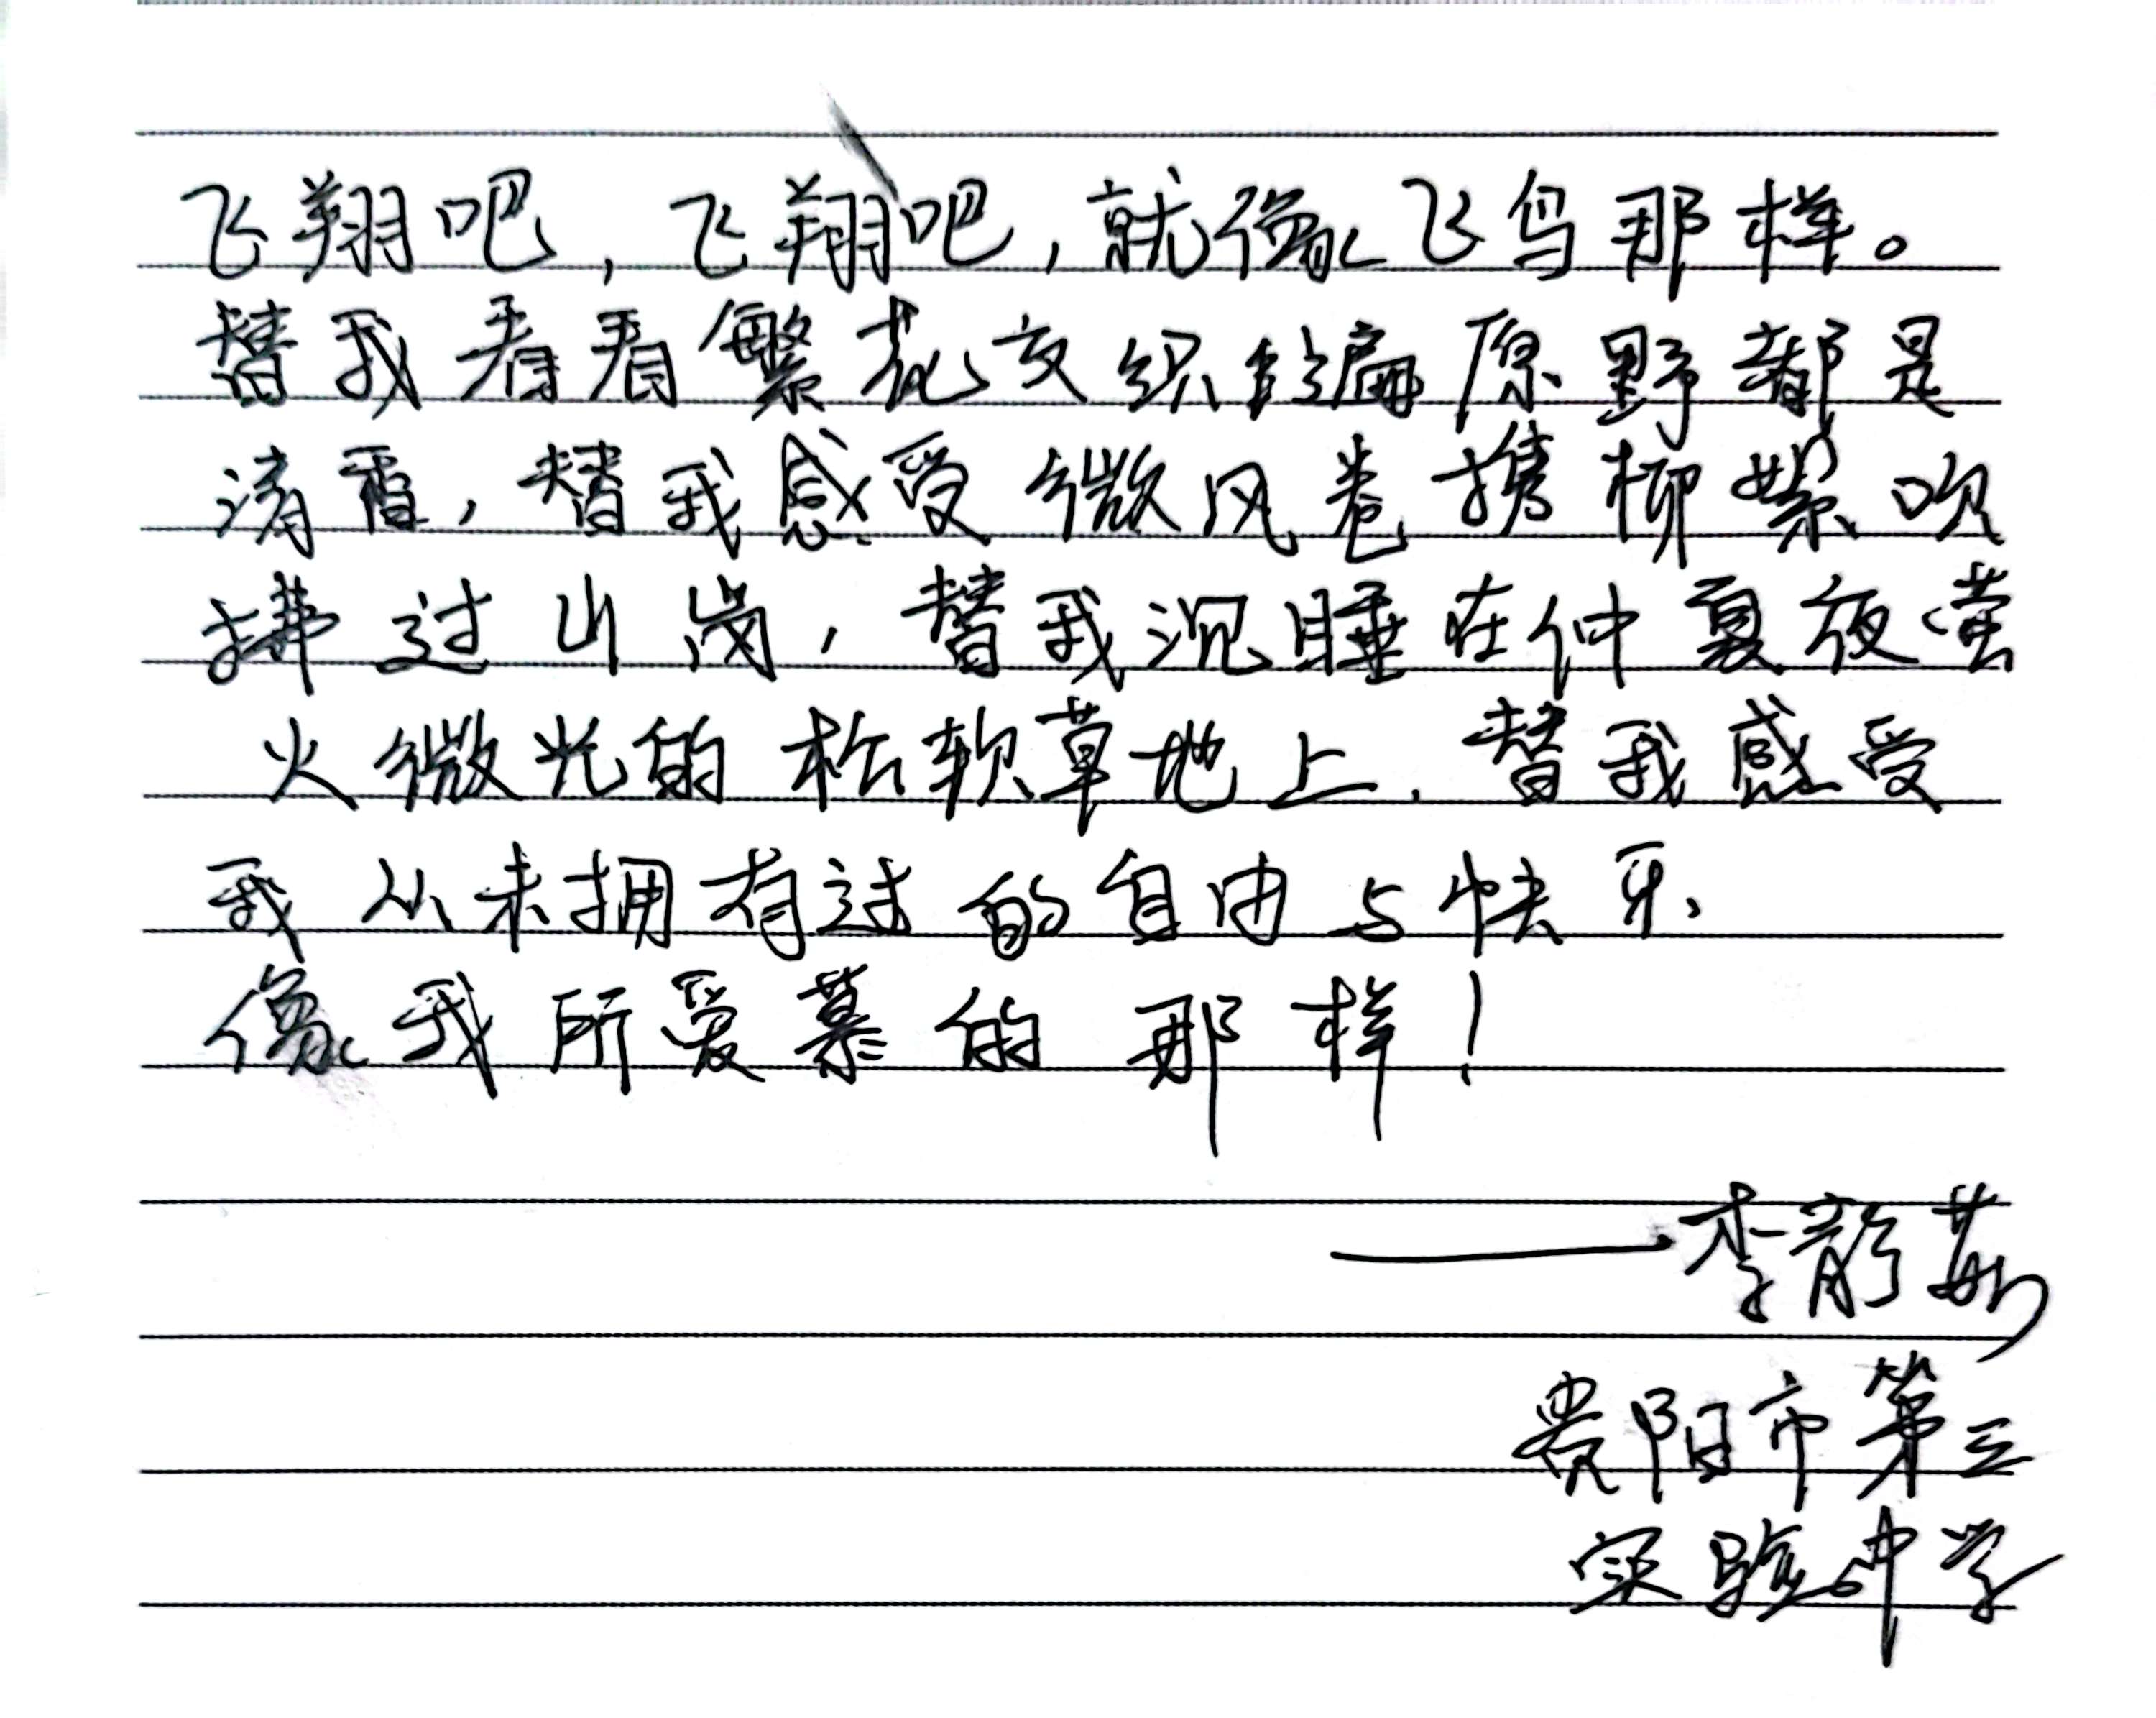 飞翔吧，飞翔吧，就像飞鸟那样。
替我看看繁花交织编原野都是
清香，替我感受微风卷携柳絮吹
拂过山岗，替我沉睡在仲夏夜萤
火微光的松软草地上，替我感受
我从未拥有过的自由与快乐、
像我所爱慕的那样！
——李韵茹
贵阳市第三
实验中学